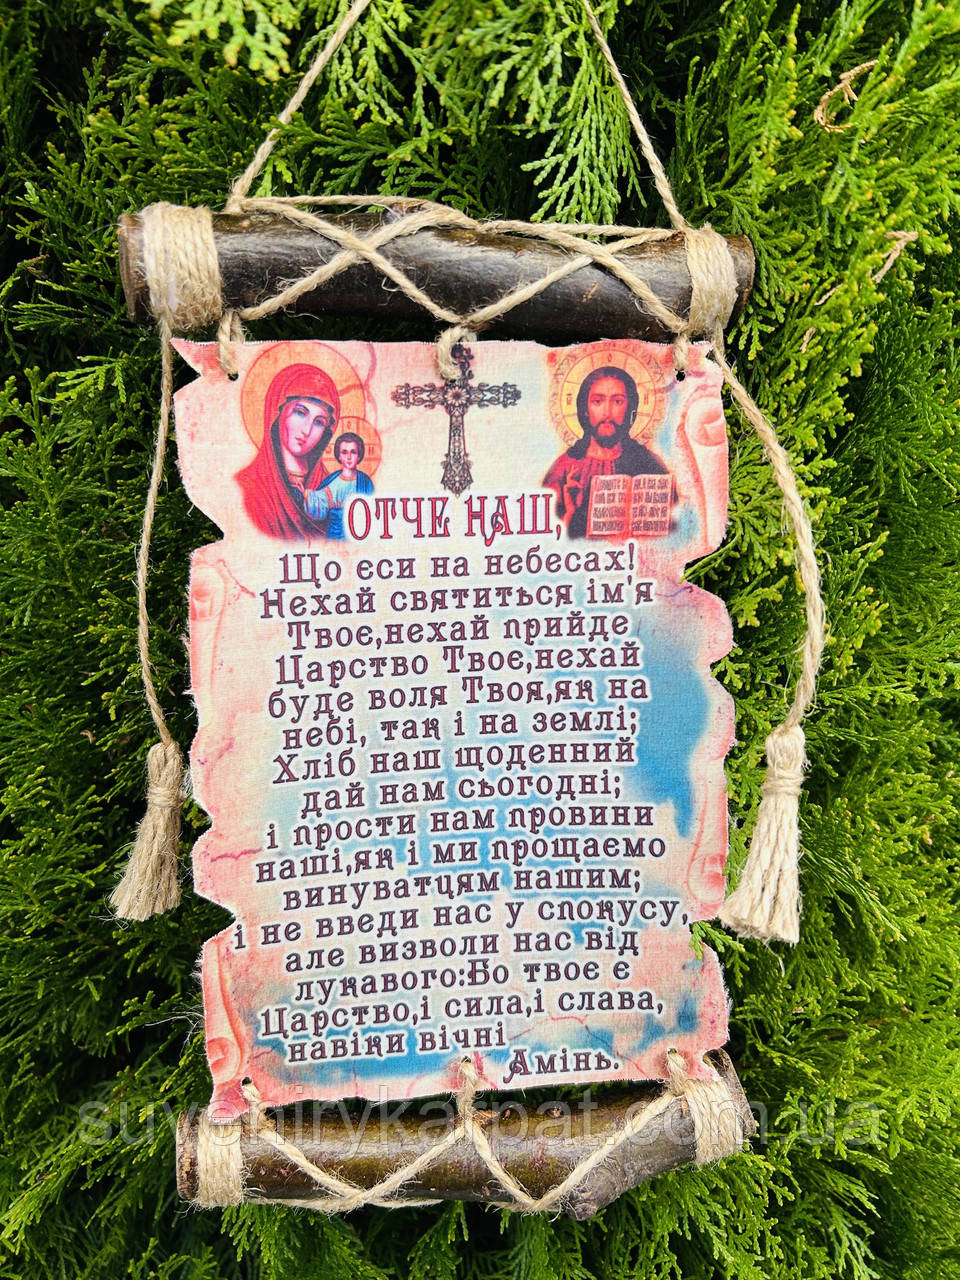 ОТЧЕ НАШ,
Що єси на небесах!
Нехай святиться ім'я
Твоє,нехай прийде
Царство Твоє,нехай
буде воля Твоя,як на
небі, так і на землі;
Хліб наш щоденний
дай нам сьогодні;
і прости нам провини
наші,як і ми прощаємо
винуватцям нашим;
і не введи нас у спокусу,
але визволи нас від
лукавого:Бо твоє є
Царство,і сила,і слава,
навіки вічні
Амінь.
suvenirykarpat.com.ua